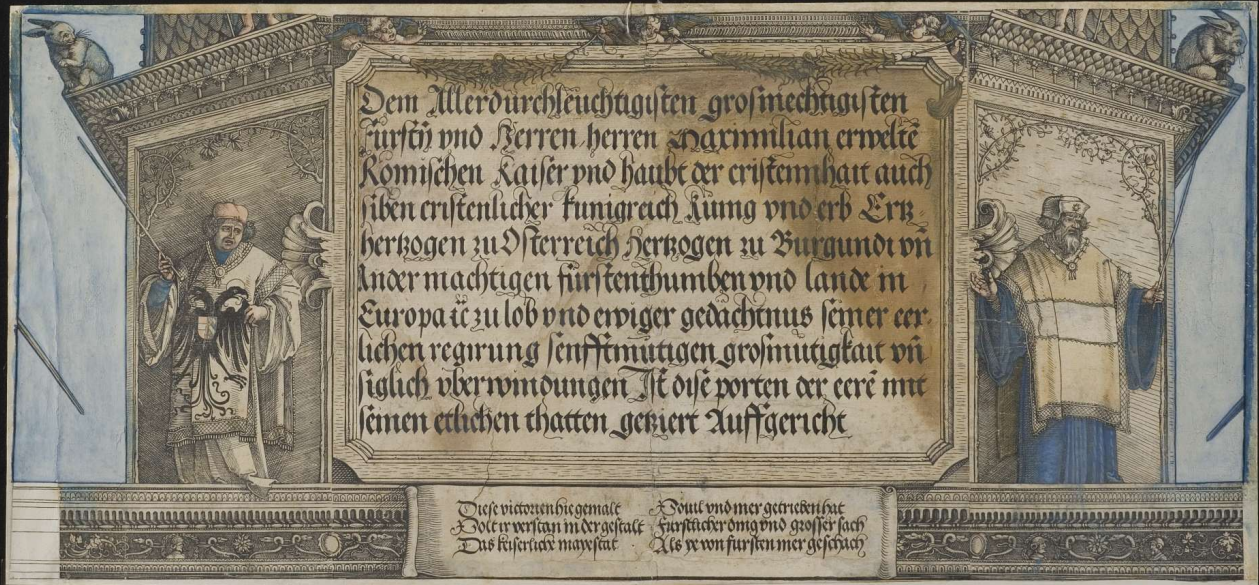 Dem Allerdurchleuchtigisten grosmechtigisten
fürstñ vnd Herren herren Maximilian erweltē
Romischen Kaiser vnd haubt der cristennhait auch
siben cristenlicher kunigreich Kunig vnd erb Ertz-
hertzogen zu Osterreich Hertzogen zu Burgundi vñ
Ander machtigen fürstenthumben vnd lande in
Europa ꝛc zu lob vnd ewiger gedächtnus seiner eer-
lichen regirung senfftmütigen grosmütigkait vñ
siglich vberwindungen Ist dise porten der eerē mit
seinen etlichen thatten getziert Auffgericht
Diese victorien hie gemalt
Wolt ir verstan in der gestalt
Das keiserliche mayestat
Souil vnd mer getrieben hat
Furstlicher ding vnd grosser sach
Als ye von fursten mer geschach